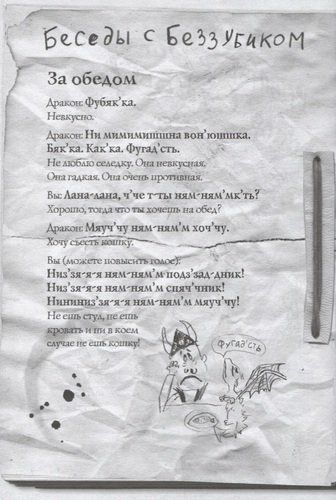 Беседы с Беззубиком
За обедом
Дракон: Фубяк'ка.
Невкусно.
Дракон: Ни мимимишшна вон'юшшка.
Бяк'ка. Как'ка. Фугад'сть.
Не люблю селедку. Она невкусная.
Она гадкая. Она очень противная.
Вы: Лана-лана, ч'че т-ты ням-ням'мк'ть?
Хорошо, тогда что ты хочешь на обед?
Дракон: Мяуч'чу ням-ням'м хоч'чу.
Хочу съесть кошку.
Вы (можете повысить голос):
Низ'зя-я-я ням-ням'м подз'зад-дник!
Низ'зя-я-я ням-ням'м спяч'чник!
Нининиз'зя-я ням-ням'м мяуч'чу!
Не ешь стул, не ешь
кровать и ни в коем
случае не ешь кошку!
Фугад'сть